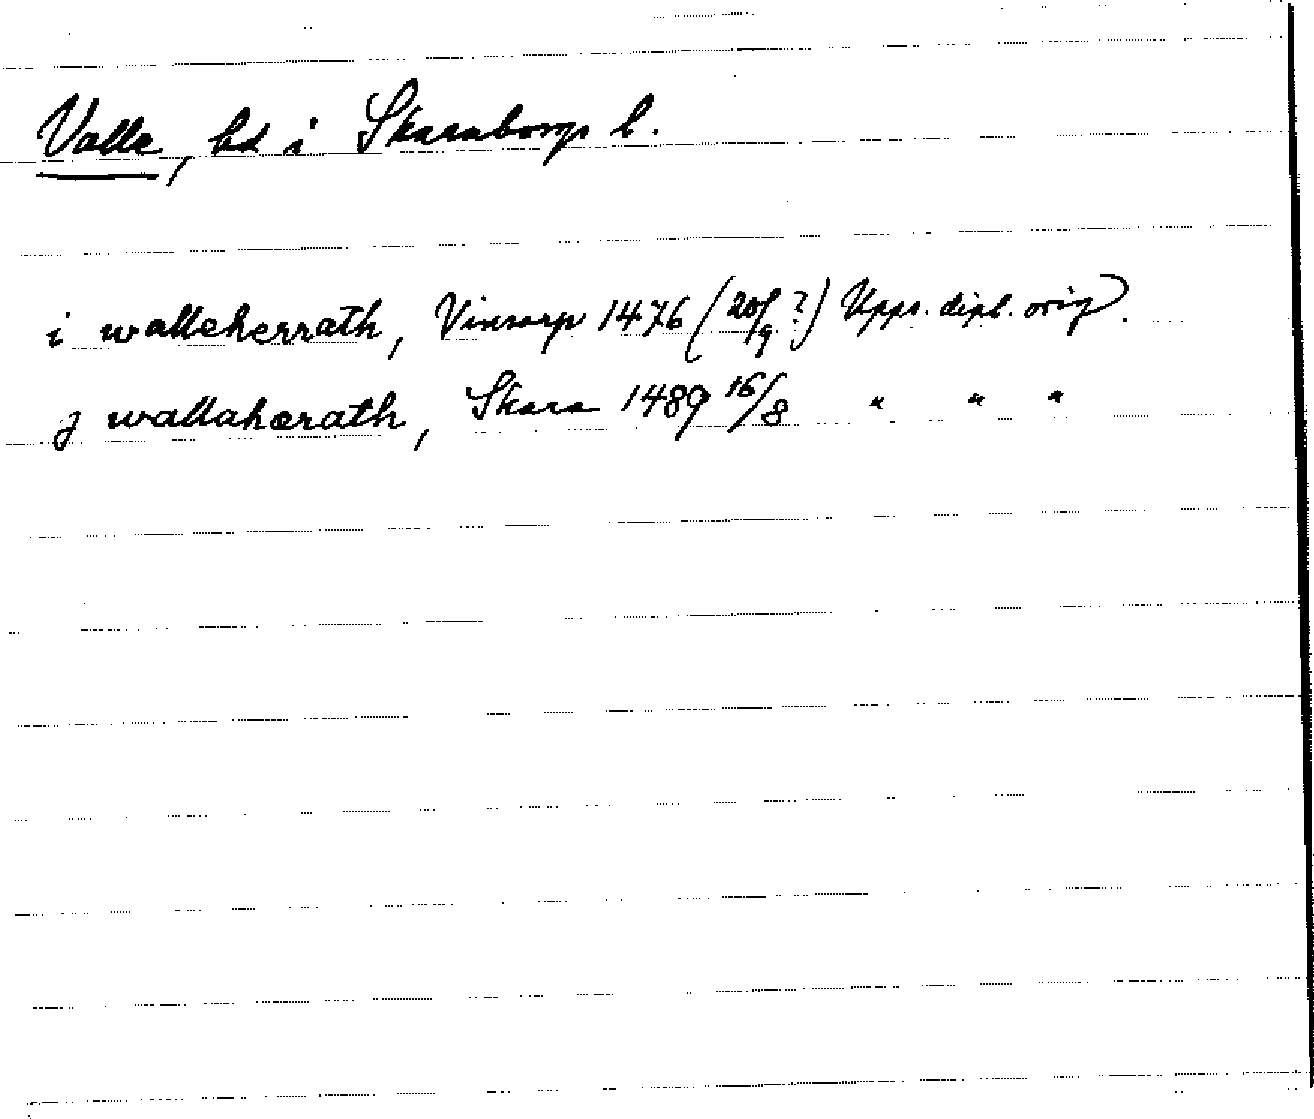 Valle, hd i Skaraborgs l.
i walleherrath, Vinsarp 1476 (20/9 ?) Upps. dipl. orig.
j wallahærath, Skara 1489 16/8 " " "